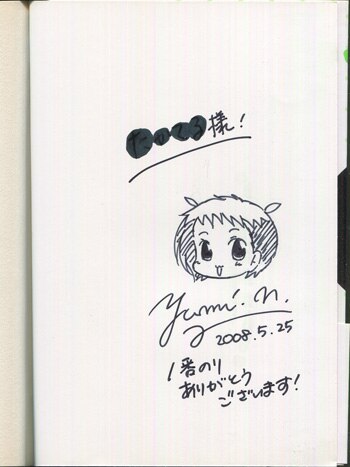 たかてる様!
Yumi.n.
2008.5.25
1番のり
ありがとう
ございます!